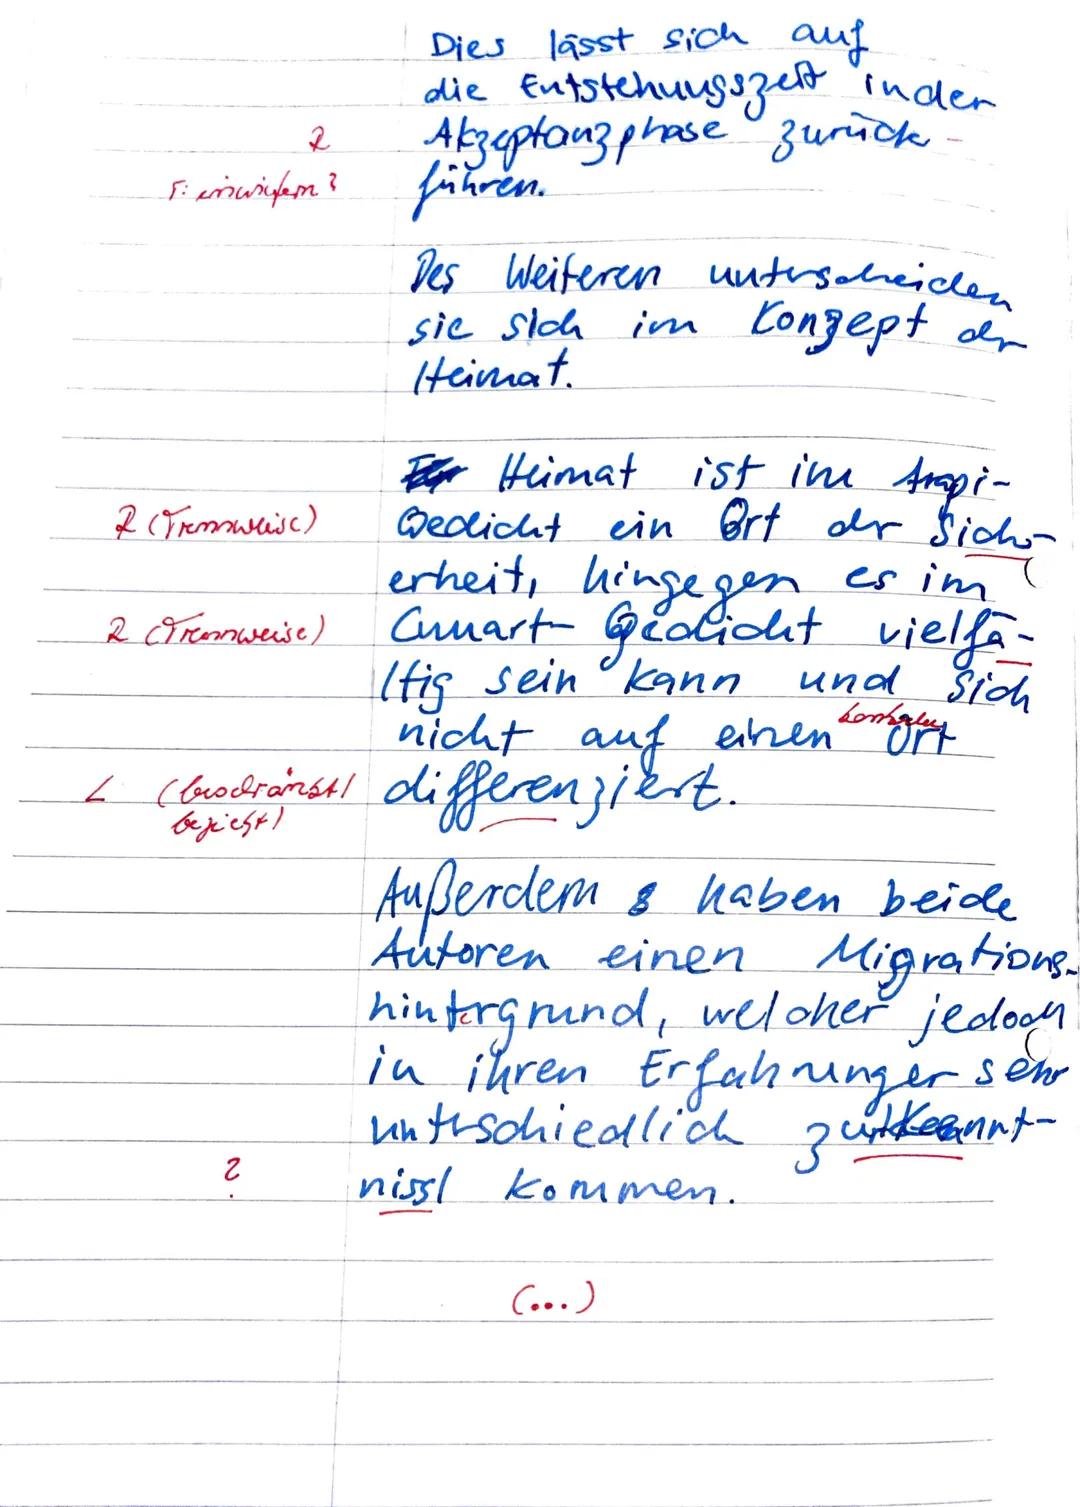 Dies lässt sich auf
die Entstehungszeit in der
R Akzeptanzphase zurück-
F: inwiefern? führen.
Des Weiteren unterscheiden
sie sich im Konzept der
Heimat.
Heimat ist im Arapi-
R (Trennweise) Gedicht ein Ort der Sich-
erheit, hingegen es im
R (Trennweise) Cumart-Gedicht vielfä-
ltig sein kann und sich
nicht auf einen Ort
L (beschränkt/ differenziert.
bezieht)
Außerdem haben beide
Autoren einen Migrations-
hintergrund, welcher jedoch
in ihren Erfahrungen sehr
unterschiedlich
? kommen.
(...)